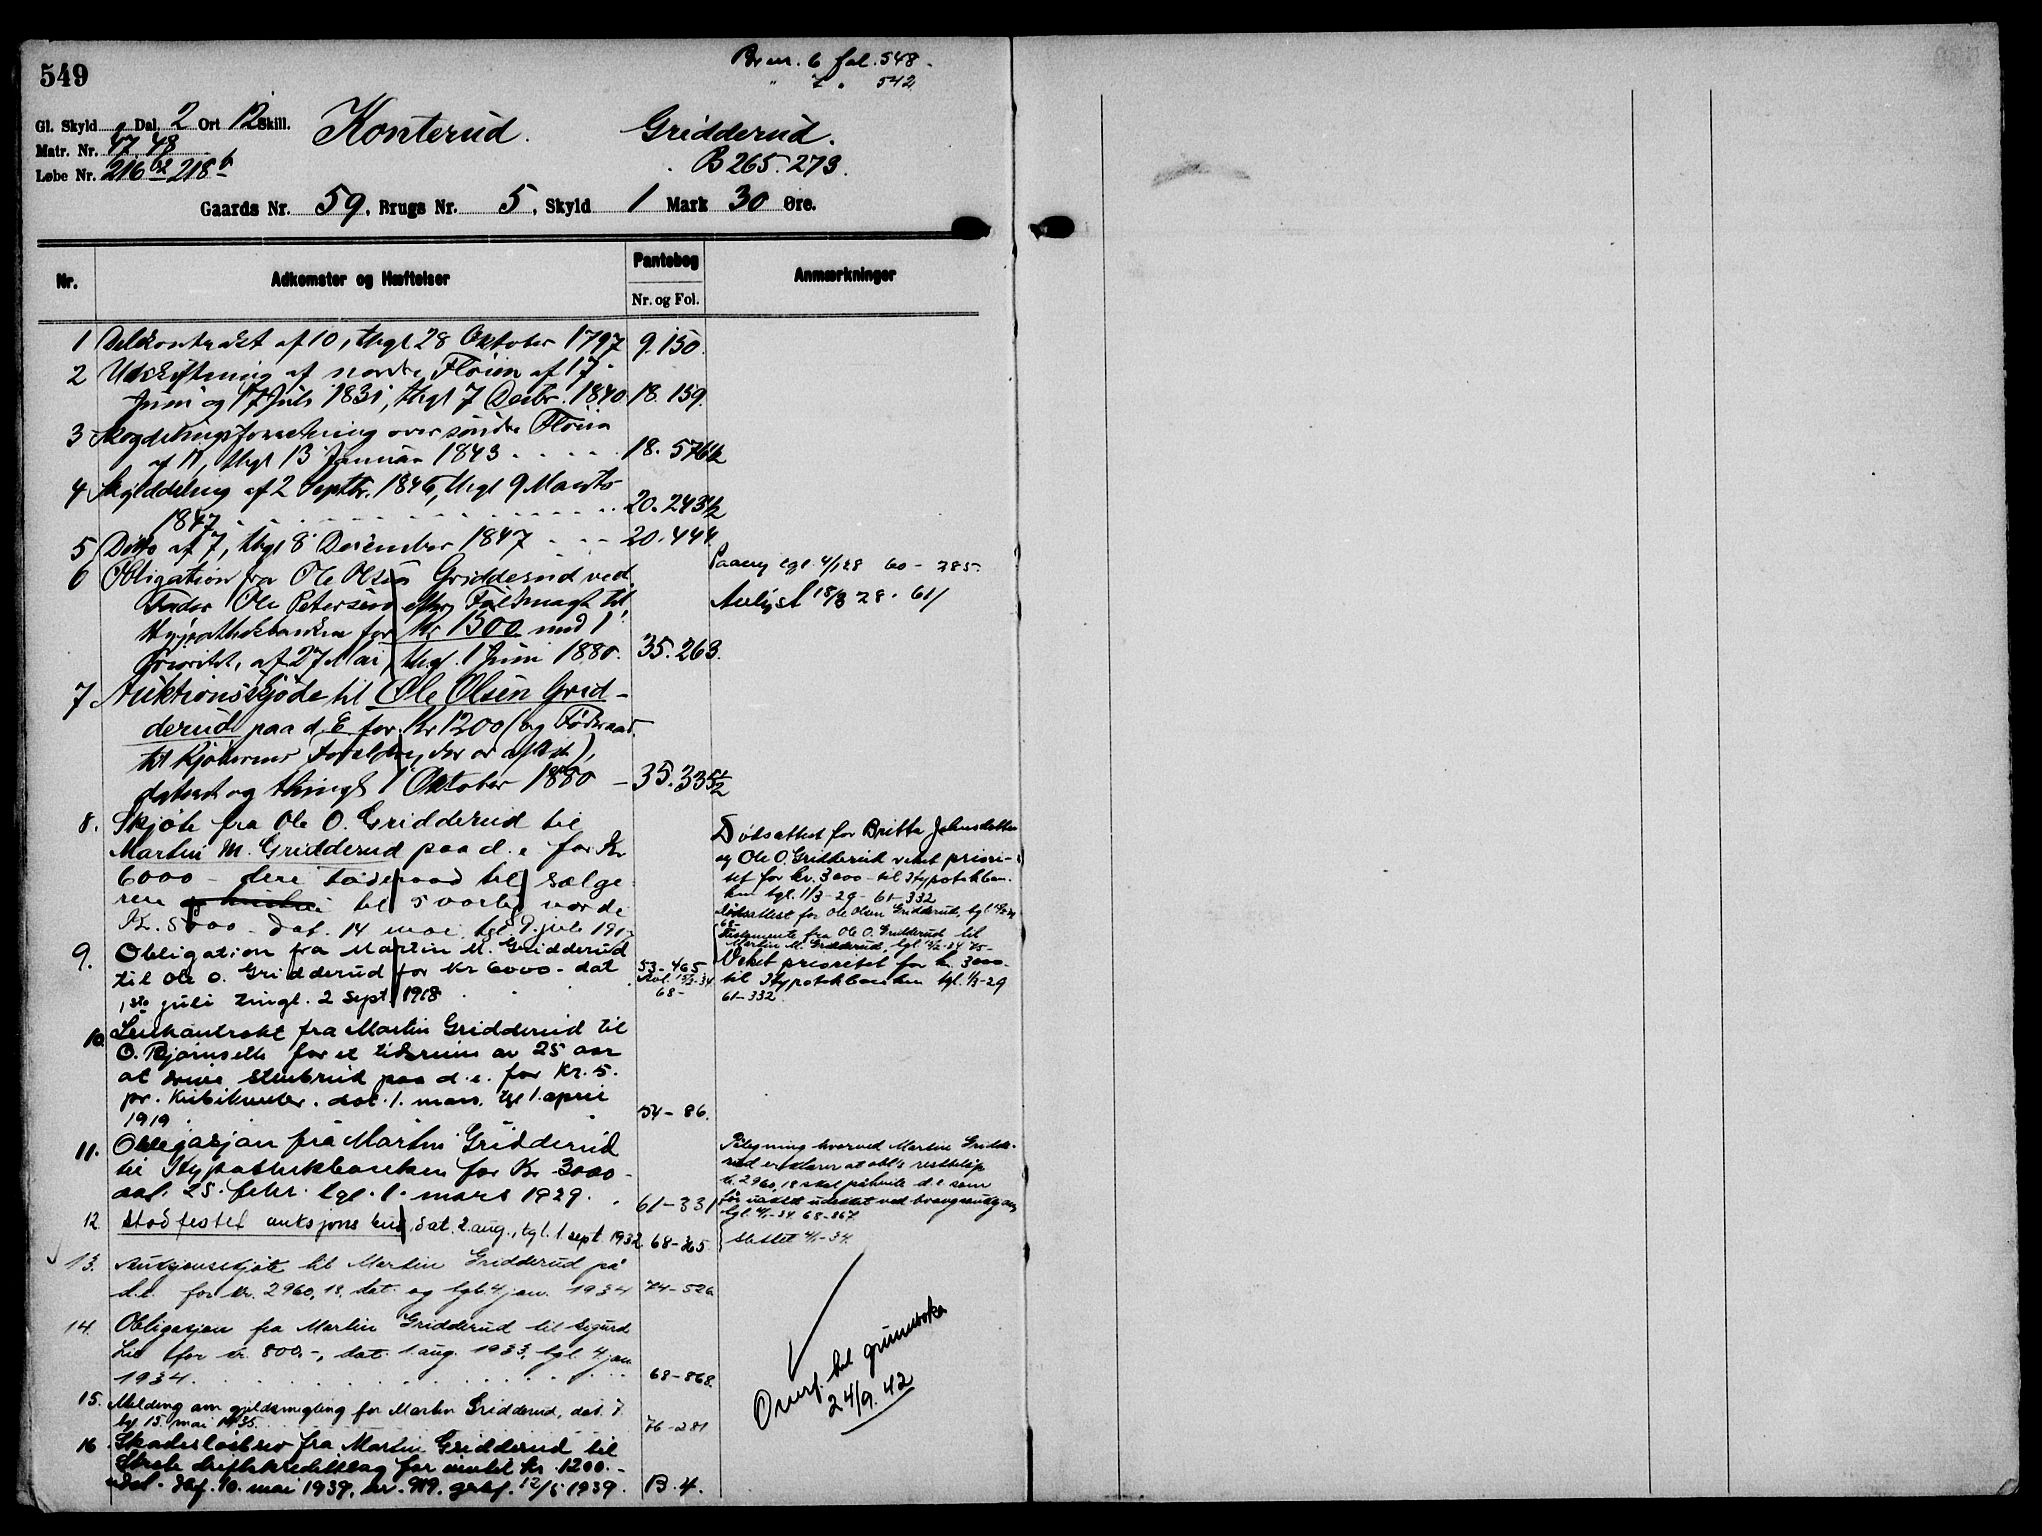 549
Br nr. 6 fol. 548.
" 7 " 542
Gl. Skyld " Dal. 2 Ort 12 Skill.
Matr. Nr. 47. 48
Løbe Nr. 216 b2 218 b
Konterud. Gridderud.
B 265. 273.
Gaards Nr. 59, Brugs Nr. 5, Skyld 1 Mark 30 Øre.
Nr. Adkomster og Hæftelser Pantebog Anmærkninger
Nr. og Fol.
1 Delekontrakt af 10, thgl 28 Oktober 1797 9.150.
2 Udskiftning af nordre Fløien af 17
Juni og 17 Juli 1831, thgl 7 Decbr. 1840. 18. 159.
3 Skogdelingsforretning over søndre Fløien
af 11, thgl 13 Januar 1843 18. 576 1/2
4 Skylddeling af 2 Septbr. 1846, thgl 9 Marts
1847 20. 243 1/2
5 Ditto af 7, thgl 8 December 1847 20. 444.
6 Obligation fra Ole Olsen Gridderud ved
Fader Ole Petersen efter Fuldmagt til
Hypothekbanken for Kr 1300 med 1
Prioritet, af 27 Mai, thgl. 1 Juni 1880. 35. 263.
Paateg tgl. 4/1 28 60 - 285.
Avlyst 15/3 28. 61/
7 Auktionsskjøde til Ole Olsen Grid-
derud paa d. E. for Kr 1200 (og Føderaad
til Kjøberens Forældre, der er afdøde),
dateret og thingl 1 Oktober 1880 - 35. 335 1/2
8. Skjøte fra Ole O. Gridderud til
Martin M. Gridderud paa d. e for Kr
6000 - dere føderaad til sælge
ren til 5 aarlig værdi
Kr. 5000 - dat. 14 mai tgl 9 juli
Dødsattest for Britta Johnsdatter
og Ole O. Gridderud veket priori-
tet for kr. 3000 - til Hypotekban-
ken tgl. 1/3 - 29 - 61-332
Dødsattest for Ole Olsen Gridderud, tgl.
68-
Testamente fra Ole O. Gridderud til
Martin M. Gridderud, tgl.
9. Obligation fra Martin M. Gridderud
til Ole O. Gridderud for Kr 6000 - dat
1ste juli tingl. 2 sept 1918
53-465
Avl. 15/3-34
68-
Veket prioritet for kr. 3000-
til Hypotekbanken tgl. 1/3-29
61-332.
10. Leiekontrakt fra Martin Gridderud til
O. Bjørnseth for et tidsrum av 25 aar
at drive stenbrud paa d. e. for Kr. 5.
pr. Kubikmeter. dat. 1. mars. tgl 1. april
1919 54 - 86.
11. Obligasjon fra Martin Gridderud
til Hypotekbanken for Kr 3000 -
dat. 25. febr. tgl. 1. mars 1929. 61 - 331
Påtegning hvorved Martin Gridde-
rud erklærer at obl's restbeløp
kr. 2960,18 skal påhvile d. e som
før uaktet udekket ved tvangsauksjon,
tgl. 4/1-34. 68-867.
12 Stadfestet auksjons bud, dat. 2. aug., tgl. 1. sept. 1932. 68 - 365.
slettet 4/1-34.
13. Auksjonsskjøte til Martin Gridderud på
d.e. for kr. 2960,18. dat. og tgl. 4 jan. 1934 74-526
14. Obligasjon fra Martin Gridderud til Sigurd
Lie for kr. 800.-, dat. 1. aug. 1933, tgl. 4 jan
1934. 68-868.
15. Melding om gjeldsmegling for Martin Gridderud, dat. 7
tgl 15. mai 1935. 76-281
16 Skadesløsbrev fra Martin Gridderud til
driftskredittlag for inntil kr. 1200.-
dat. 10. mai 1939. nr. 12/5 1939. B. 4.
Overf. til grunnboka
24/9. 42